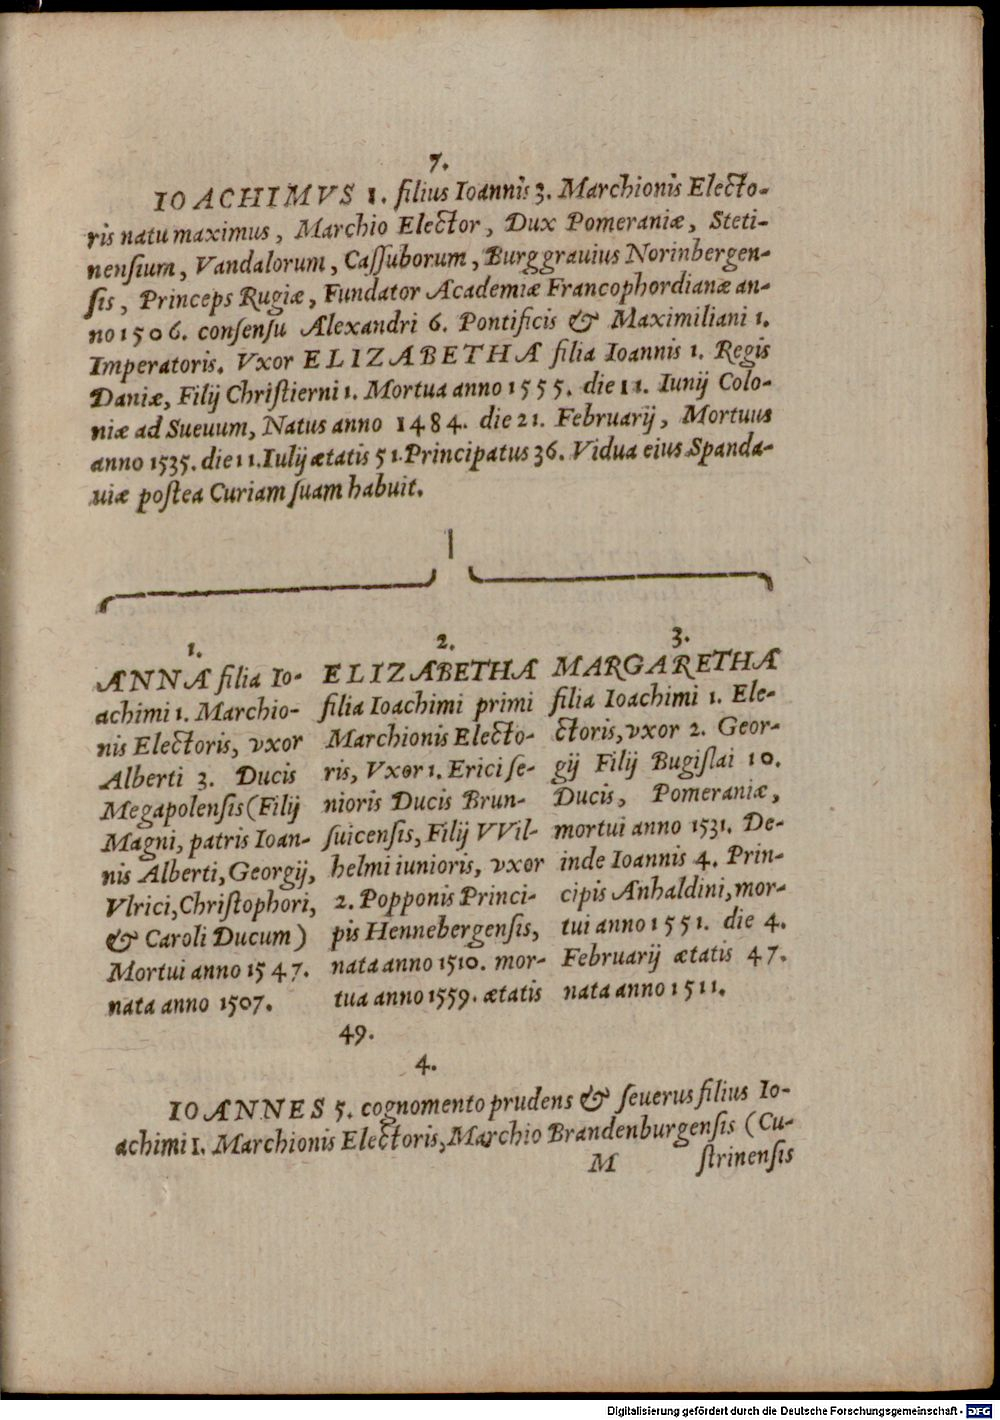 7.
IOACHIMVS 1. filius Ioannis 3. Marchionis Electo-
ris natu maximus, Marchio Elector, Dux Pomeraniæ, Steti-
nensium, Vandalorum, Caſſuborum, Burggrauius Norinbergen-
ſis, Princeps Rugiæ, Fundator Academiæ Francophordianæ an-
no 1506. conſenſu Alexandri 6. Pontificis & Maximiliani 1.
Imperatoris. Vxor ELIZABETHA filia Ioannis 1. Regis
Daniæ, Filij Chriſtierni 1. Mortua anno 1555. die 11. Iunij Colo-
niæ ad Sueuum, Natus anno 1484. die 21. Februarij, Mortuus
anno 1535. die 11. Iulij ætatis 51. Principatus 36. Vidua eius Spanda-
uiæ poſtea Curiam ſuam habuit.
1.
ANNA filia Io-
achimi 1. Marchio-
nis Electoris, vxor
Alberti 3. Ducis
Megapolenſis (Filij
Magni, patris Ioan-
nis Alberti, Georgij,
Vlrici, Chriſtophori,
& Caroli Ducum)
Mortui anno 1547.
nata anno 1507.
2.
ELIZABETHA
filia Ioachimi primi
Marchionis Electo-
ris, Vxor 1. Erici ſe-
nioris Ducis Brun-
ſuicenſis, Filij VVil-
helmi iunioris, vxor
2. Popponis Princi-
pis Hennebergenſis,
nata anno 1510. mor-
tua anno 1559. ætatis
49.
3.
MARGARETHA
filia Ioachimi 1. Ele-
ctoris, vxor 2. Geor-
gij Filij Bugiſlai 10.
Ducis, Pomeraniæ,
mortui anno 1531. De-
inde Ioannis 4. Prin-
cipis Anhaldini, mor-
tui anno 1551. die 4.
Februarij ætatis 47.
nata anno 1511.
4.
IOANNES 5. cognomento prudens & ſeuerus filius Io-
achimi 1. Marchionis Electoris, Marchio Brandenburgenſis (Cu-
M ſtrinenſis
Digitalisierung gefördert durch die Deutsche Forschungsgemeinschaft - DFG